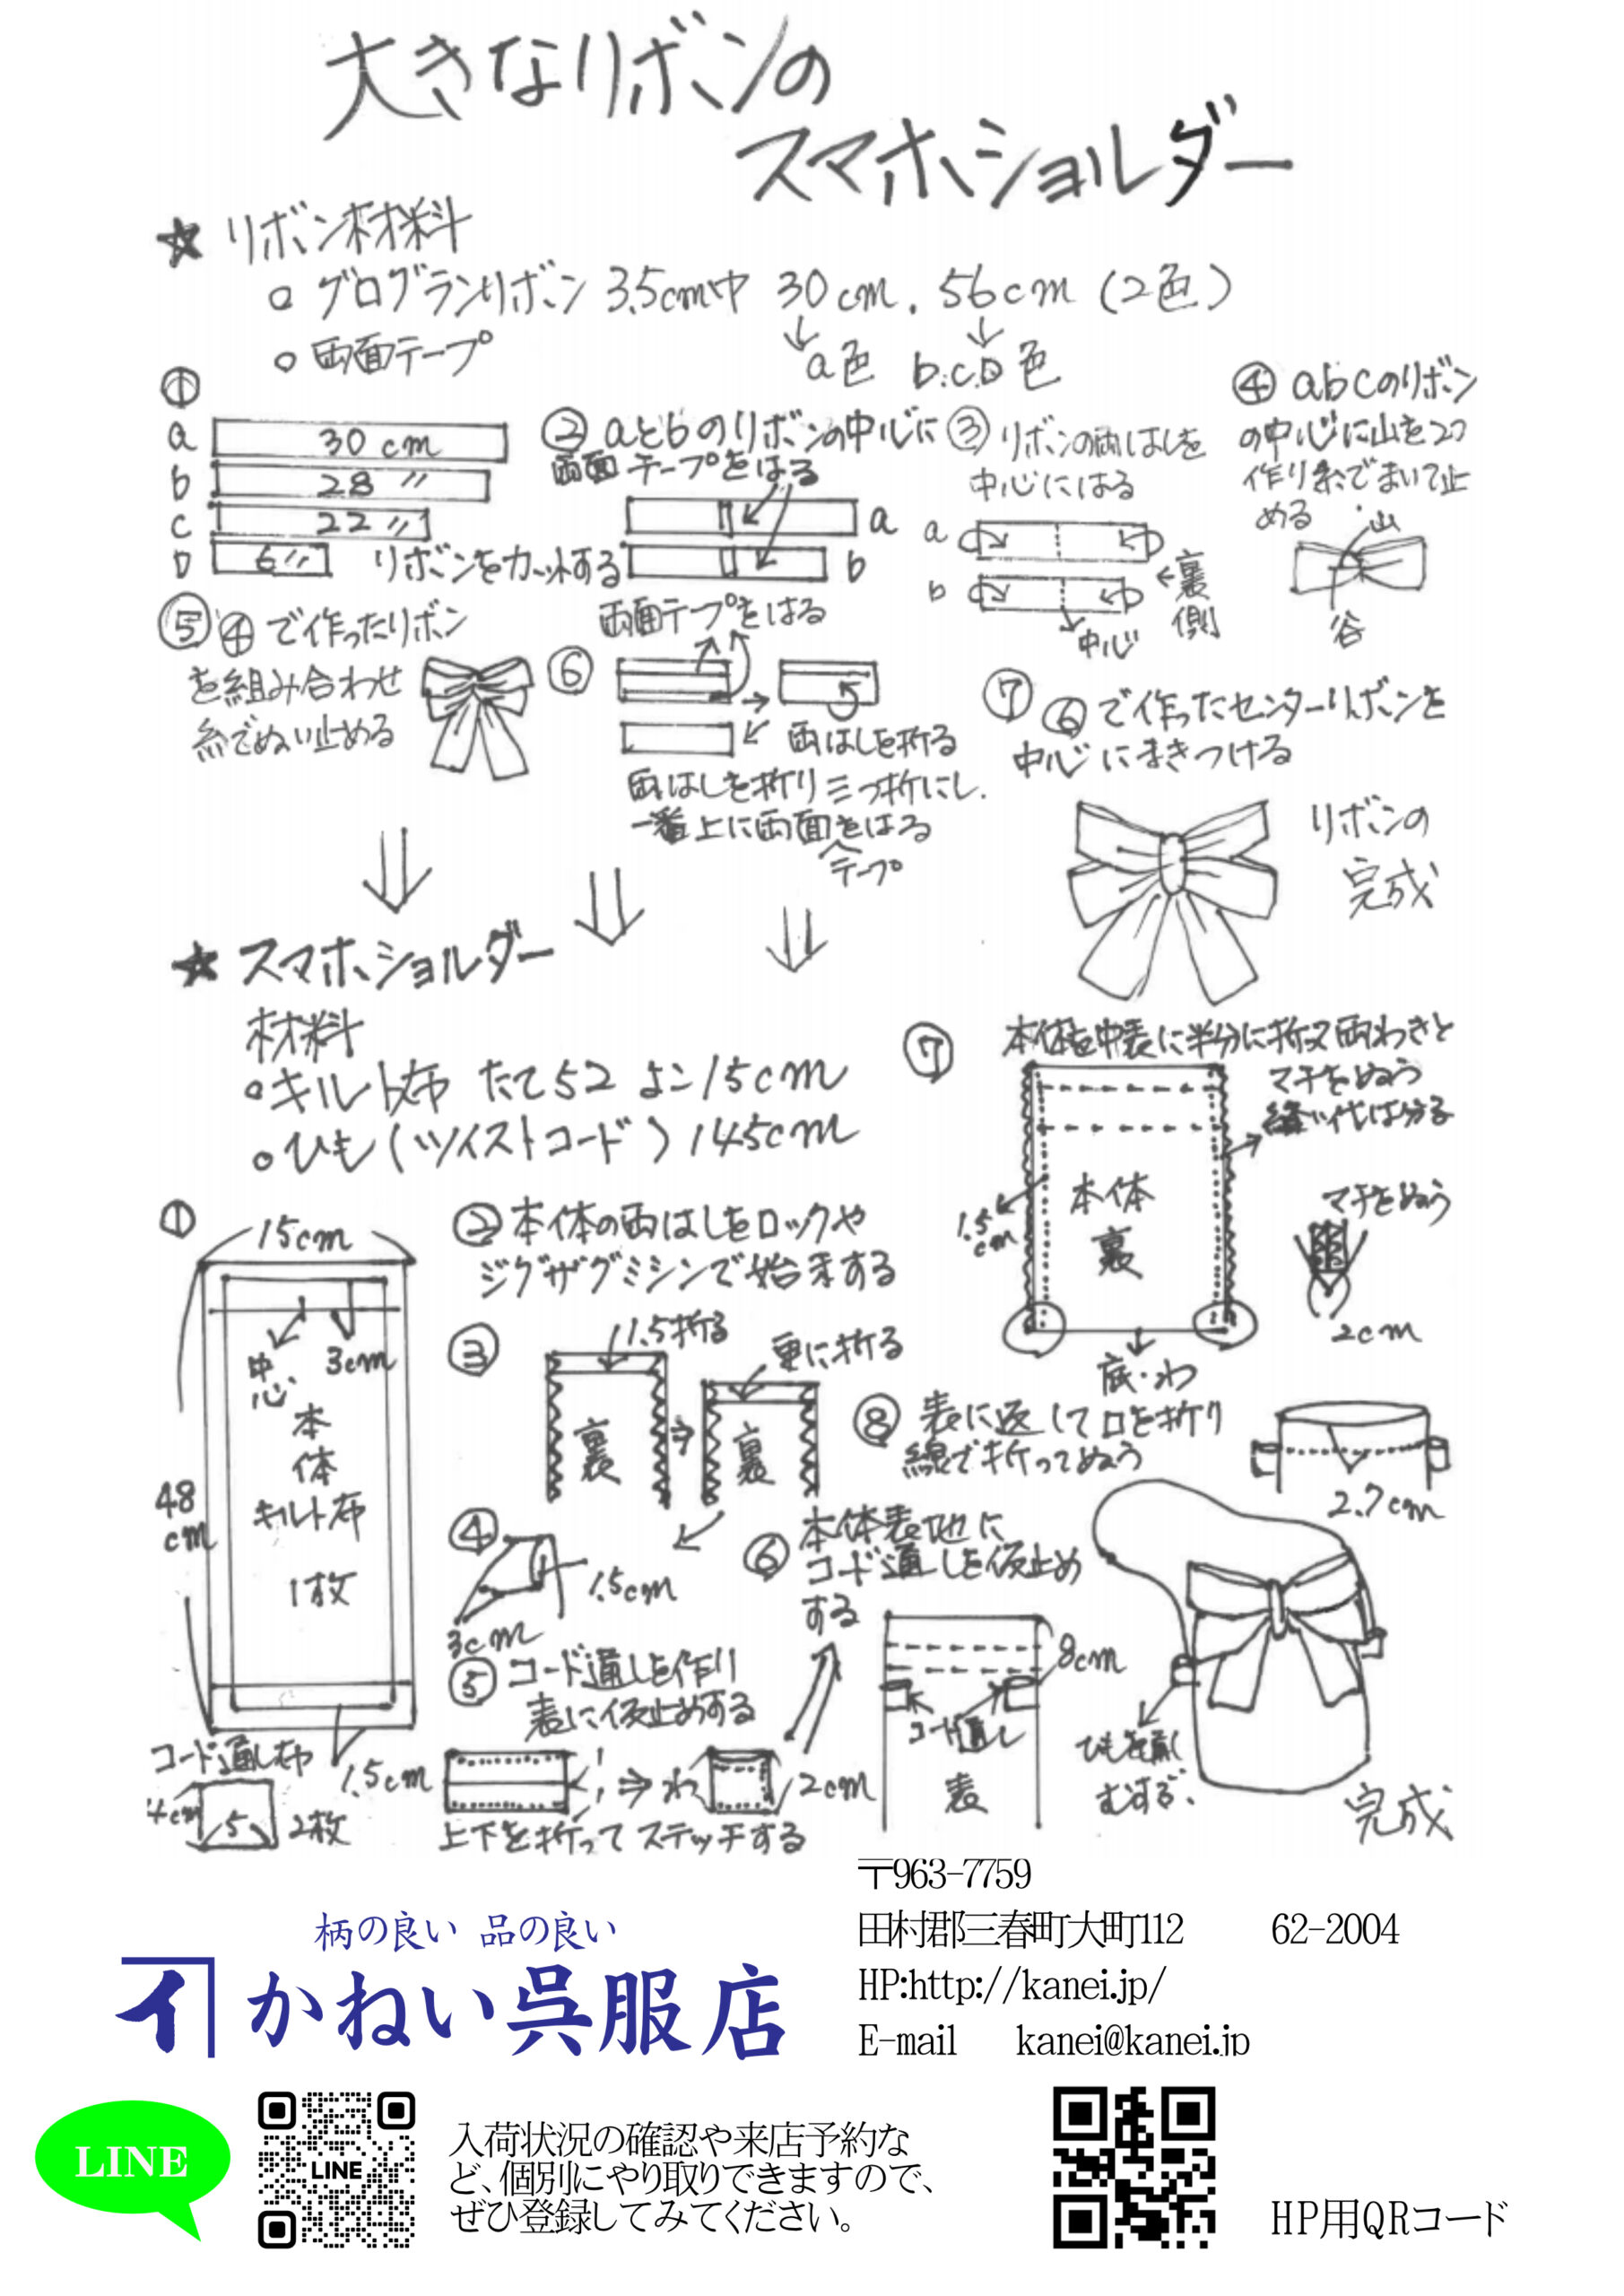 大きなリボンの
スマホショルダー
☆ リボン材料
○ グログランリボン 3.5cm巾 30cm. 56cm (2色)
↓ ↓
a色 b.c.D色
○ 両面テープ
①
a 30cm
b 28〃
c 22〃
D 6〃 リボンをカットする
② aとbのリボンの中心に
両面テープをはる
a
b
③ リボンの両はしを
中心にはる
a
b
←裏側
中心
④ abcのリボン
の中心に山を2つ
作り糸でまいて止
める
山
谷
⑤ ④で作ったリボン
を組み合わせ
糸でぬい止める
⑥ 両面テープをはる
両はしを折る
両はしを折り三つ折にし.
一番上に両面テープをはる
⑦ ⑥で作ったセンターリボンを
中心にまきつける
リボンの
完成
☆ スマホショルダー
材料
○キルト布 たて52 よこ15cm
○ひも(ツイストコード) 145cm
①
15cm
中心 3cm
48cm
本体
キルト布
1枚
1.5cm
コード通し布
4cm 5 2枚
② 本体の両はしをロックや
ジグザグミシンで始末する
③ 1.5折る 更に折る
裏 ⇒ 裏
④
1.5cm
3cm
⑤ コード通しを作り
表に仮止めする
⇒ わ 2cm
上下を折ってステッチする
⑥ 本体表地に
コード通しを仮止め
する
8cm
コード通し
表
⑦ 本体を中表に半分に折又両わきと
マチをぬう
縫い代は分る
1.5cm
本体
裏
マチをぬう
2cm
底・わ
⑧ 表に返して口を折り
線で折ってぬう
2.7cm
ひもを通し
むすぶ.
完成
〒963-7759
田村郡三春町大町112 62-2004
HP:http://kanei.jp/
E-mail kanei@kanei.jp
柄の良い 品の良い
イ かねい呉服店
LINE
LINE
入荷状況の確認や来店予約な
ど、個別にやり取りできますので、
ぜひ登録してみてください。
HP用QRコード